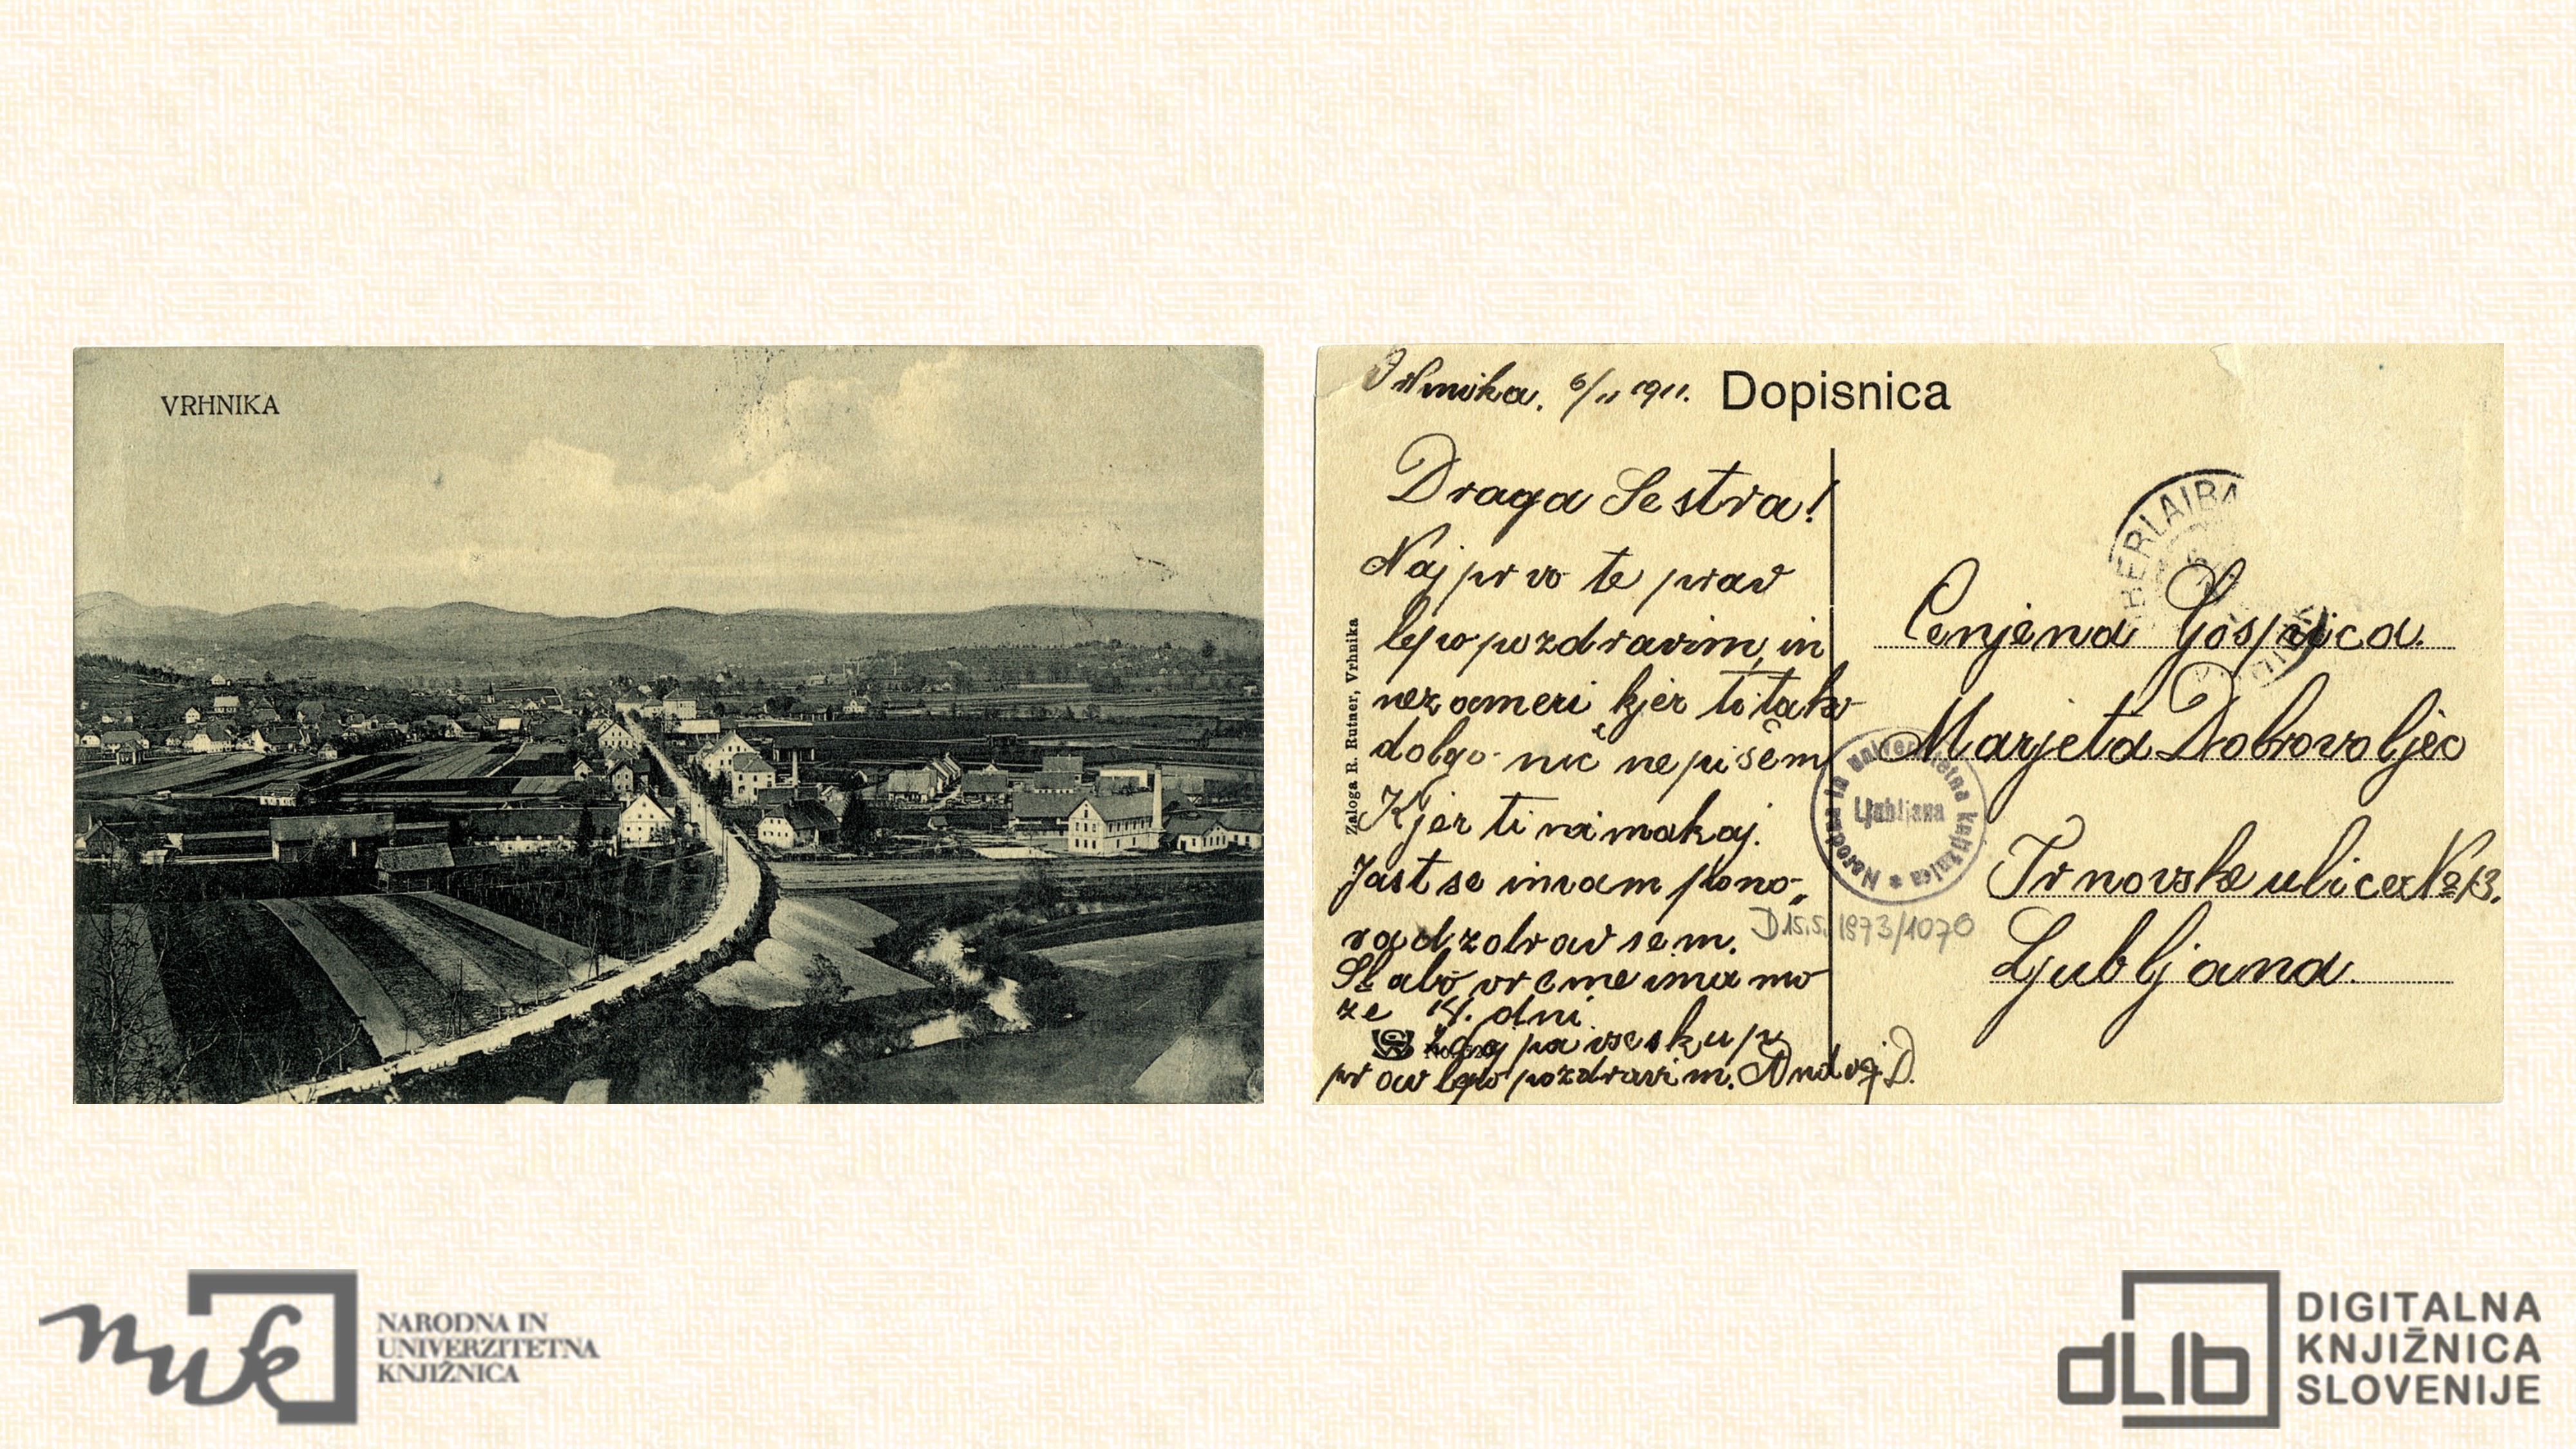 VRHNIKA
Vrhnika, 6/11 1911.
Dopisnica
Draga Sestra!
Najprvo te prav
lepo pozdravim, in
nezameri kjer ti tako
dolgo nič nepišem
Kjer ti ni makaj.
Jast se imam pono„
vad, zdrav sem.
Slabo vreme imamo
že 14. dni
pa vse skup
prav lepo pozdravim. Andrej. D.
Zaloga R. Rutner, Vrhnika
BERLAIBA
Cenjena Gospica.
Marjeta Dobrovoljec
Trnovske ulice No 13.
Ljubljana.
Narodna in univerzitetna knjižnica
Ljubljana
D 15.5. 1973/1070
nuk
NARODNA IN
UNIVERZITETNA
KNJIŽNICA
dLib
DIGITALNA
KNJIŽNICA
SLOVENIJE